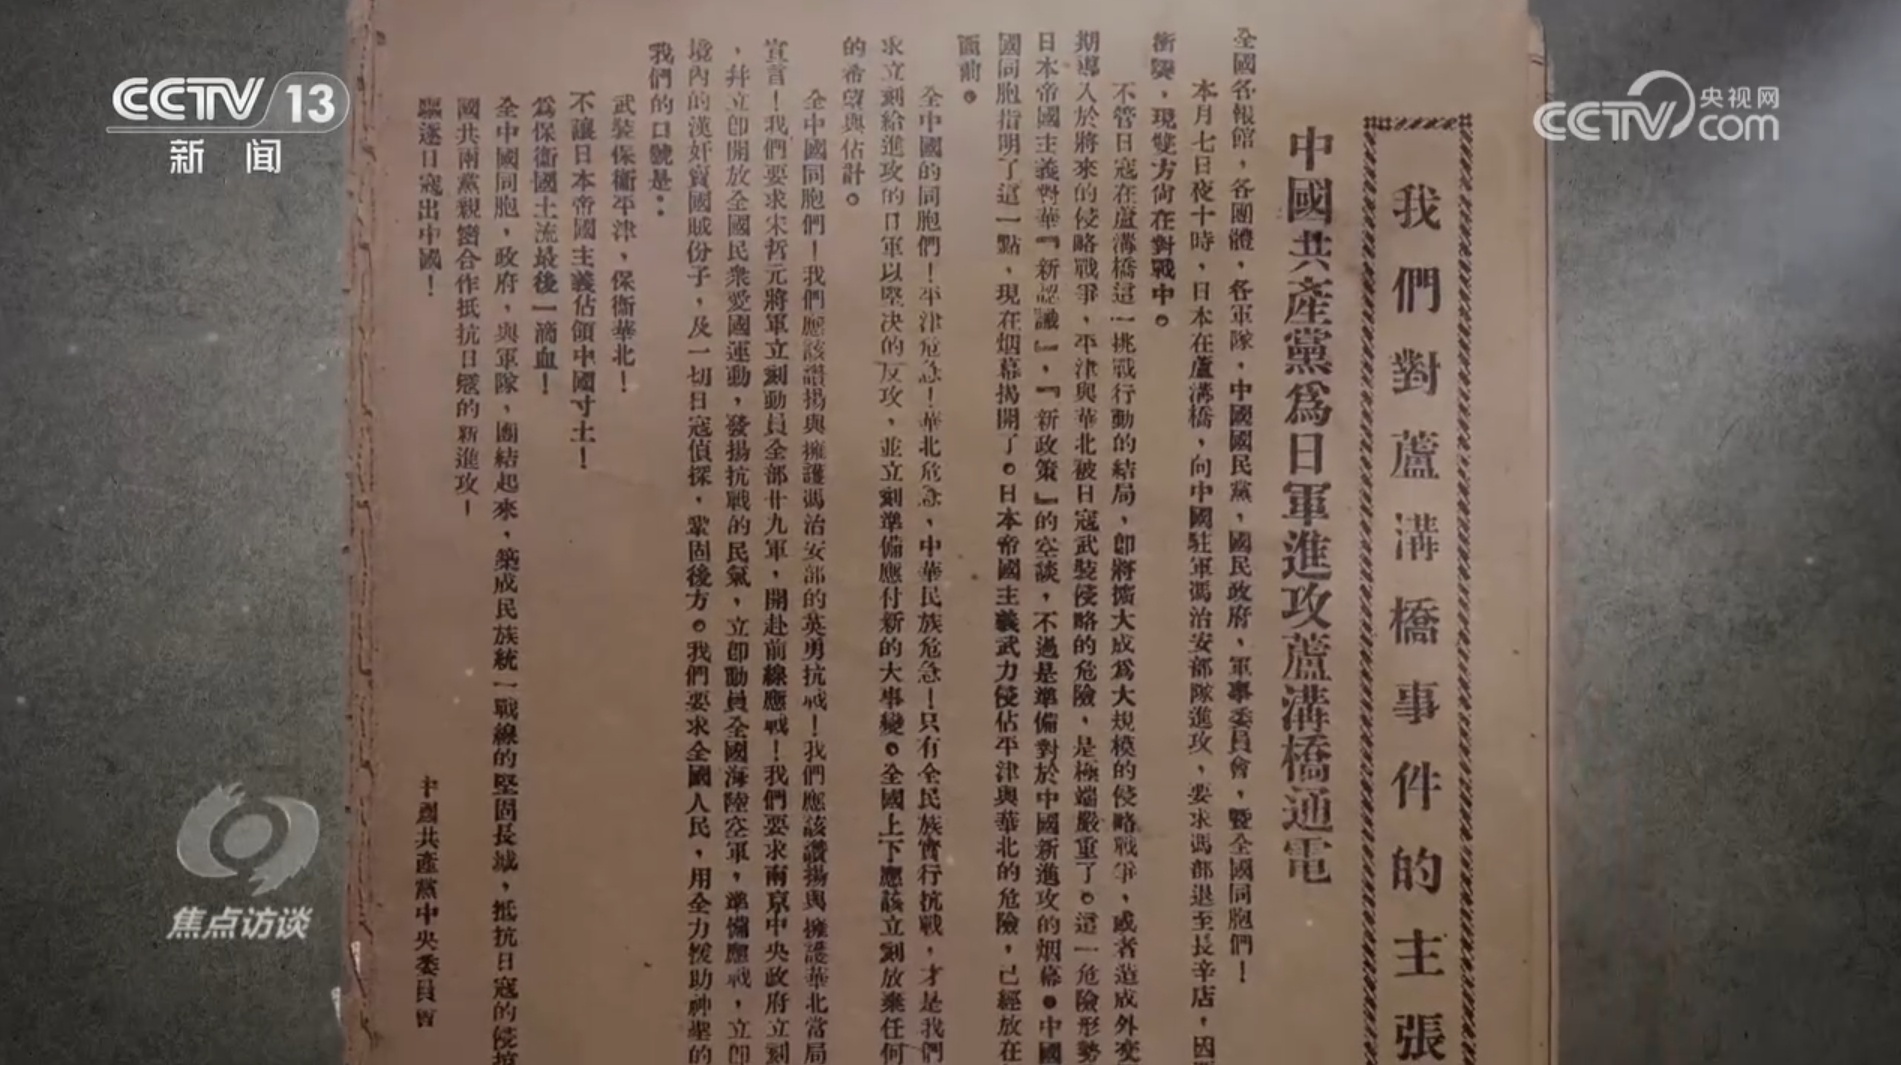 CCTV 13
新闻
央视网
CCTV com
我們對蘆溝橋事件的主張
中國共產黨爲日軍進攻蘆溝橋通電
全國各報館，各團體，各軍隊，中國國民黨，國民政府，軍事委員會，暨全國同胞們！
本月七日夜十時，日本在蘆溝橋，向中國駐軍馮治安部隊進攻，要求馮部退至長辛店，因
衝突，現雙方尙在對戰中。
不管日寇在蘆溝橋這一挑戰行動的結局，卽將擴大成爲大規模的侵略戰爭，或者造成外交
期導入於將來的侵略戰爭，平津與華北被日寇武裝侵略的危險，是極端嚴重了。這一危險形勢
日本帝國主義對華『新認識』，『新政策』的空談，不過是準備對於中國新進攻的烟幕。中國
國同胞指明了這一點，現在烟幕揭開了。日本帝國主義武力侵佔平津與華北的危險，已經放在
面前。
全中國的同胞們！平津危急！華北危急，中華民族危急！只有全民族實行抗戰，才是我們
求立刻給進攻的日軍以堅决的反攻，並立刻準備應付新的大事變。全國上下應該立刻放棄任何
的希望與估計。
全中國同胞們！我們應該讚揚與擁護馮治安部的英勇抗戰！我們應該讚揚與擁護華北當局
宣言！我們要求宋哲元將軍立刻動員全部廿九軍，開赴前線應戰！我們要求南京中央政府立刻
，幷立卽開放全國民衆愛國運動，發揚抗戰的民氣，立卽動員全國海陸空軍，準備應戰，立卽
境內的漢奸賣國賊份子，及一切日寇偵探，鞏固後方。我們要求全國人民，用全力援助神聖的
我們的口號是：
武裝保衞平津，保衞華北！
不讓日本帝國主義佔領中國寸土！
爲保衞國土流最後一滴血！
全中國同胞，政府，與軍隊，團結起來，築成民族統一戰線的堅固長城，抵抗日寇的侵掠
國共兩黨親密合作抵抗日寇的新進攻！
驅逐日寇出中國！
中國共產黨中央委員會
焦点访谈